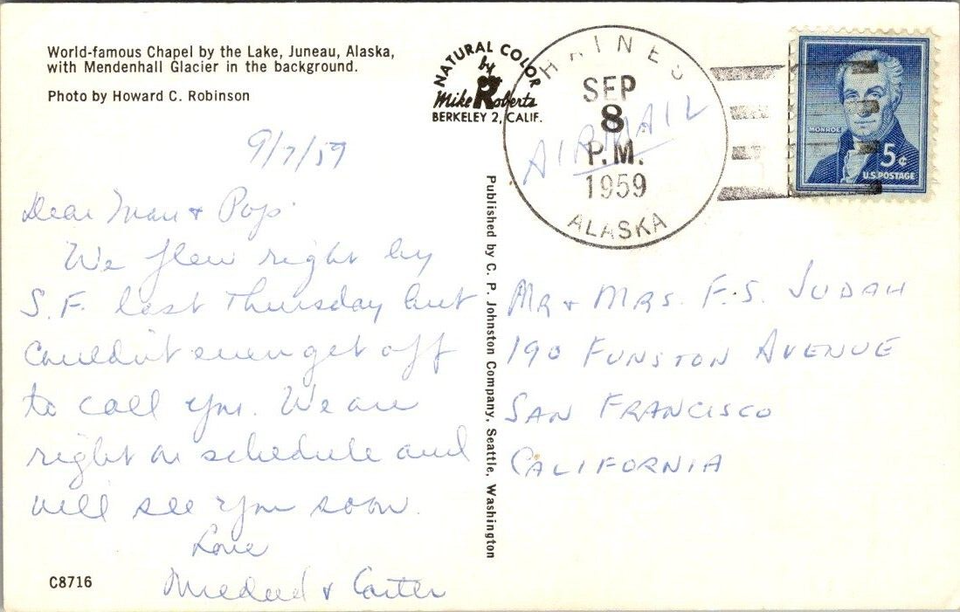 World-famous Chapel by the Lake, Juneau, Alaska,
with Mendenhall Glacier in the background.
Photo by Howard C. Robinson
NATURAL COLOR
by
Mike Roberts
BERKELEY 2, CALIF.
HAINES
SEP
8
P.M.
1959
ALASKA
AIRMAIL
MONROE
5¢
U.S. POSTAGE
9/7/59
Dear Mau & Pop
We flew right by
S.F. last Thursday but
couldn't even get off
to call you. We are
right on schedule and
will see you soon.
Love
Mildred & Carter
Published by C. P. Johnston Company, Seattle, Washington
MR & MRS. F.S. JUDAH
190 FUNSTON AVENUE
SAN FRANCISCO
CALIFORNIA
C8716